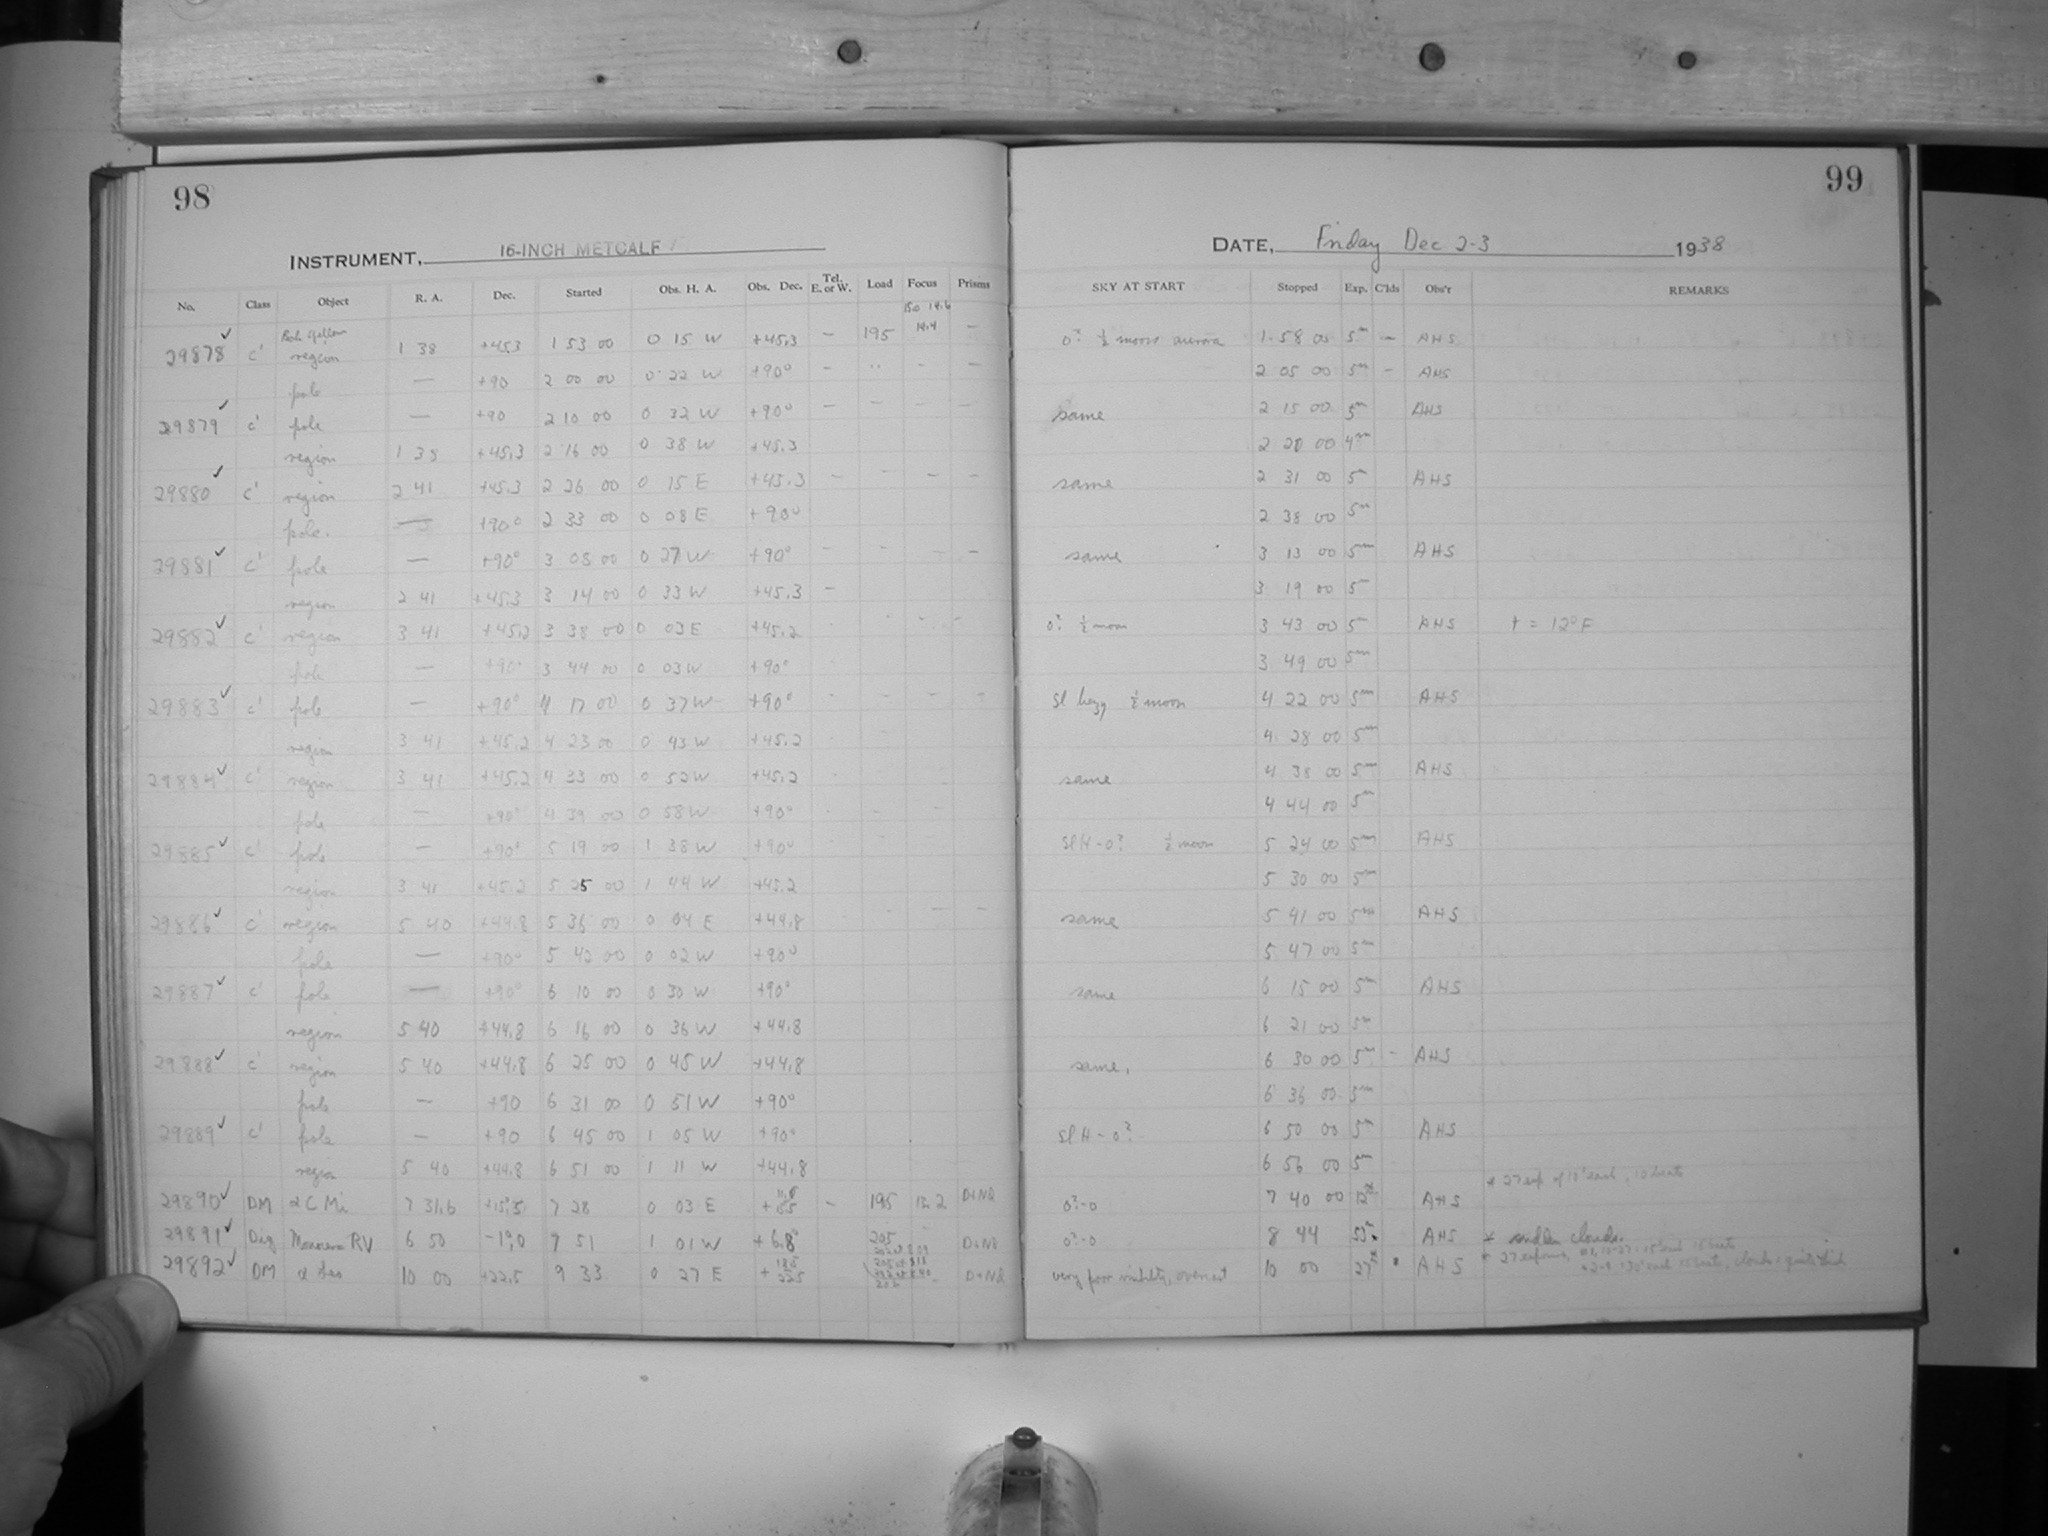 98
INSTRUMENT, 16-INCH METCALF
No. Class Object R. A. Dec. Started Obs. H. A. Obs. Dec. Tel. E. or W. Load Focus Prisms
29878 ✓ c' region 1 38 +45.3 1 53 00 0 15 W +45.3 — 195 14.4 —
pole — +90 2 00 00 0 22 W +90° — " — —
29879 ✓ c' pole — +90 2 10 00 0 32 W +90° — — — —
region 1 38 +45.3 2 16 00 0 38 W +45.3
29880 ✓ c' region 2 41 +45.3 2 26 00 0 15 E +45.3 — — — —
pole. — +90° 2 33 00 0 08 E +90°
29881 ✓ c' pole — +90° 3 08 00 0 27 W +90° — — — —
region 2 41 +45.3 3 14 00 0 33 W +45.3 —
29882 ✓ c' region 3 41 +45.2 3 38 00 0 03 E +45.2
pole — +90° 3 44 00 0 03 W +90°
29883 ✓ c' pole — +90° 4 17 00 0 37 W +90°
region 3 41 +45.2 4 23 00 0 43 W +45.2
29884 ✓ c' region 3 41 +45.2 4 33 00 0 52 W +45.2
pole — +90° 4 39 00 0 58 W +90°
29885 ✓ c' pole — +90° 5 19 00 1 38 W +90°
region 3 41 +45.2 5 25 00 1 44 W +45.2
29886 ✓ c' region 5 40 +44.8 5 36 00 0 04 E +44.8
pole — +90° 5 42 00 0 02 W +90°
29887 ✓ c' pole — +90° 6 10 00 0 30 W +90°
region 5 40 +44.8 6 16 00 0 36 W +44.8
29888 ✓ c' region 5 40 +44.8 6 25 00 0 45 W +44.8
pole — +90 6 31 00 0 51 W +90°
29889 ✓ c' pole — +90 6 45 00 1 05 W +90°
region 5 40 +44.8 6 51 00 1 11 W +44.8
29890 ✓ DM α C Mi 7 31.6 +15.5 7 28 0 03 E — 195 13.2
29891 ✓ RV 6 50 -1°.0 7 51 1 01 W +6.8° 205
29892 ✓ DM α Leo 10 00 +22.5 9 33 0 27 E
99
DATE, Friday Dec 2-3 1938
SKY AT START Stopped Exp. C'lds Obs'r REMARKS
0? ½ moon aurora 1 58 00 5m — AHS
2 05 00 5m — AHS
same 2 15 00 5m AHS
2 20 00 4m
same 2 31 00 5m AHS
2 38 00 5m
same 3 13 00 5m AHS
3 19 00 5m
0? ½ moon 3 43 00 5m AHS t = 12°F
3 49 00 5m
Sl hazy ½ moon 4 22 00 5m AHS
4 28 00 5m
same 4 38 00 5m AHS
4 44 00 5m
Sl H-0? ½ moon 5 24 00 5m AHS
5 30 00 5m
same 5 41 00 5m AHS
5 47 00 5m
same 6 15 00 5m AHS
6 21 00 5m
same. 6 30 00 5m — AHS
6 36 00 5m
Sl H-0? 6 50 00 5m AHS
6 56 00 5m
* 27 exp of 10s each,
0?-0 7 40 00 12 AHS
0?-0 8 44 53 AHS * sudden clouds.
very poor 10 00 27 AHS